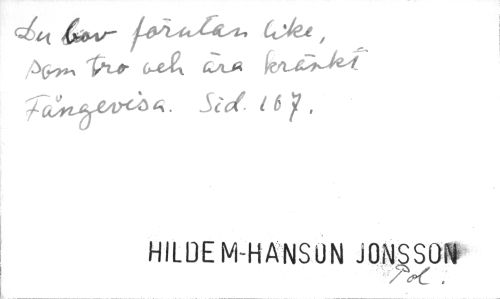 Du bov förutan like,
som tro och ära kränkt
Fångevisa. Sid. 107.
HILDEM-HANSON JONSSON
Pol.